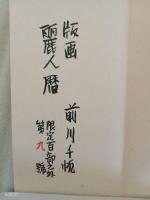 版画 前川千帆
麗人暦
限定百部之外
第九號